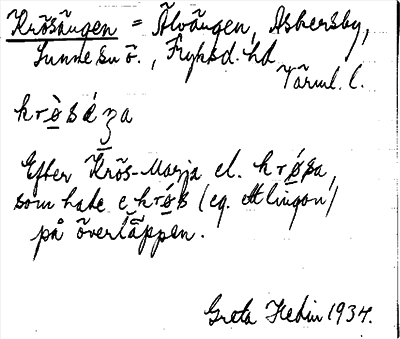 Krösängen = Älvängen, Askersby,
Sunne sn ö., Fryksd. hd
Värml. l.
krò̲sǽŋa
Efter Krös-Marja el. krǿ̲sa,
som hade e krǿ̲s (eg. ett lingon)
på överläppen.
Greta Hedin 1934.